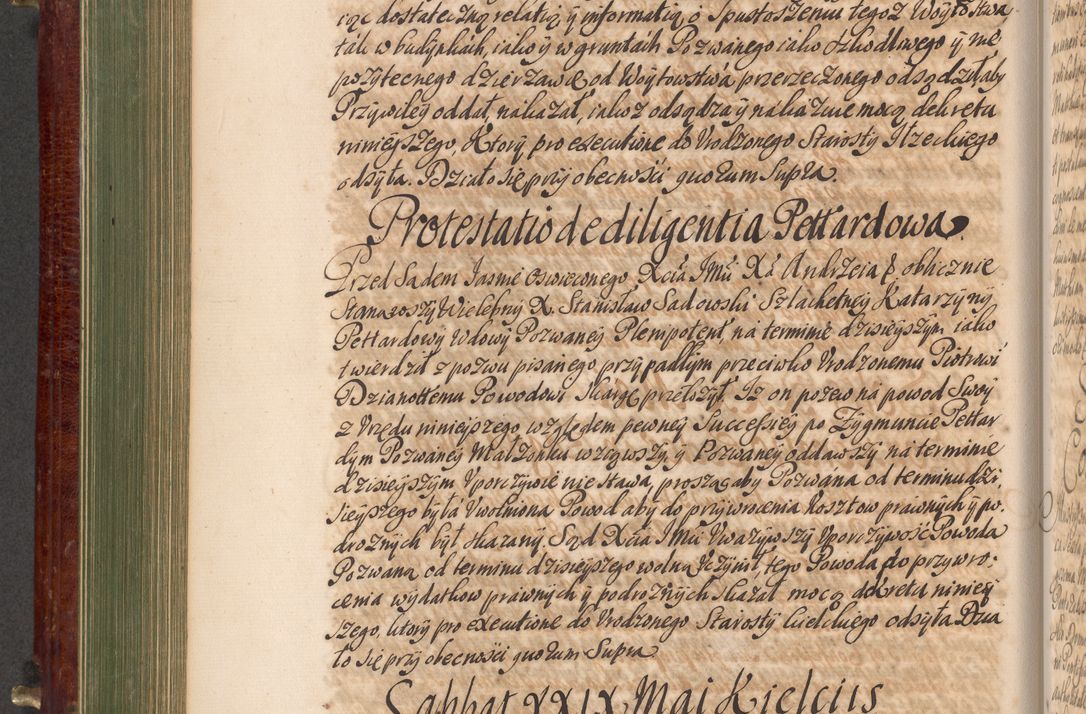 iąc dostateczną relatią y informatią o Spustoszeniu tegoż Woytostwa
tak w budynkach, iako y w gruntach Pozwanego iako szkodliwego y nie
pozytecznego dzierzawcę, od Woytowstwa przerzeczonego odsądził, aby
Przywiley oddał, nakazał, iakoż odsądza y nakazuie mocą dekretu
ninieyszego, Ktory pro executione do Urodzonego Starosty Ilzeckiego
odsyła. Działo się przy obecnosći quorum Supra.
Protestatio de diligentia Pettardowa.
Przed Sądem Jasnie Oswieconego Xcia JMci Xa Andrzeia p. oblicznie
Stanąwszy Wielebny X. Stanisław Sadowski Szlachetney Katarzyny
Pettardowy Wdowy Pozwaney Plenipotent, na terminie dzisieyszym iako
twierdził z pozwu pisanego przypadłym przeciwko Urodzonemu Piotrowi
Dzianottemu Powodowi Skargę przełożył. Iz on pozew na powod Swoy
z Urzędu ninieyszego względem pewney Successiey po Zygmuncie Pettar
dym Pozwaney Małżonku wziąwszy, y Pozwaney oddawszy na terminie
dzisieyszym Uporczywie nie stawa, prosząc aby Pozwana od terminu dzi,
sieyszego była Uwolniona Powod aby do przywrocenia kosztow prawnych y po,
droznych był skazany. Sąd Xcia JMci Uważywszy Uporczywość Powoda
Pozwaną od terminu dzisieyszego wolną Uczynił, tego Powoda do przywro,
cenia wydatkow prawnych y podroznych skazał mocą dekretu niniey
szego, ktory pro executione do Urodzonego Starosty kieleckiego odsyła Dzia
ło się przy obecnosći quorum Supra
Sabbat XXIX Maj Kielciis